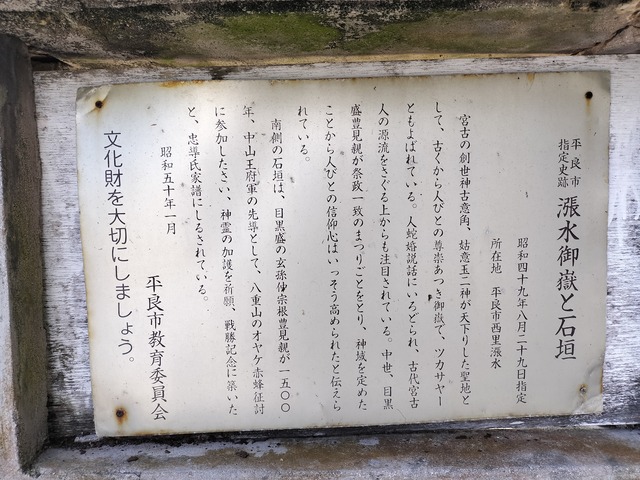 平良市
指定史跡
漲水御嶽と石垣
昭和四十九年八月二十九日指定
所在地　平良市西里漲水
宮古の創世神古意角、姑意玉二神が天下りした聖地と
して、古くから人びとの尊崇あつき御嶽で、ツカサヤー
ともよばれている。人蛇婚説話にいろどられ、古代宮古
人の源流をさぐる上からも注目されている。中世、目黒
盛豊見親が祭政一致のまつりごとをとり、神域を定めた
ことから人びとの信仰心はいっそう高められたと伝えら
れている。
南側の石垣は、目黒盛の玄孫仲宗根豊見親が一五〇〇
年、中山王府軍の先導として、八重山のオヤケ赤蜂征討
に参加したさい、神霊の加護を祈願、戦勝記念に築いた
と、忠導氏家譜にしるされている。
昭和五十年一月
平良市教育委員会
文化財を大切にしましょう。